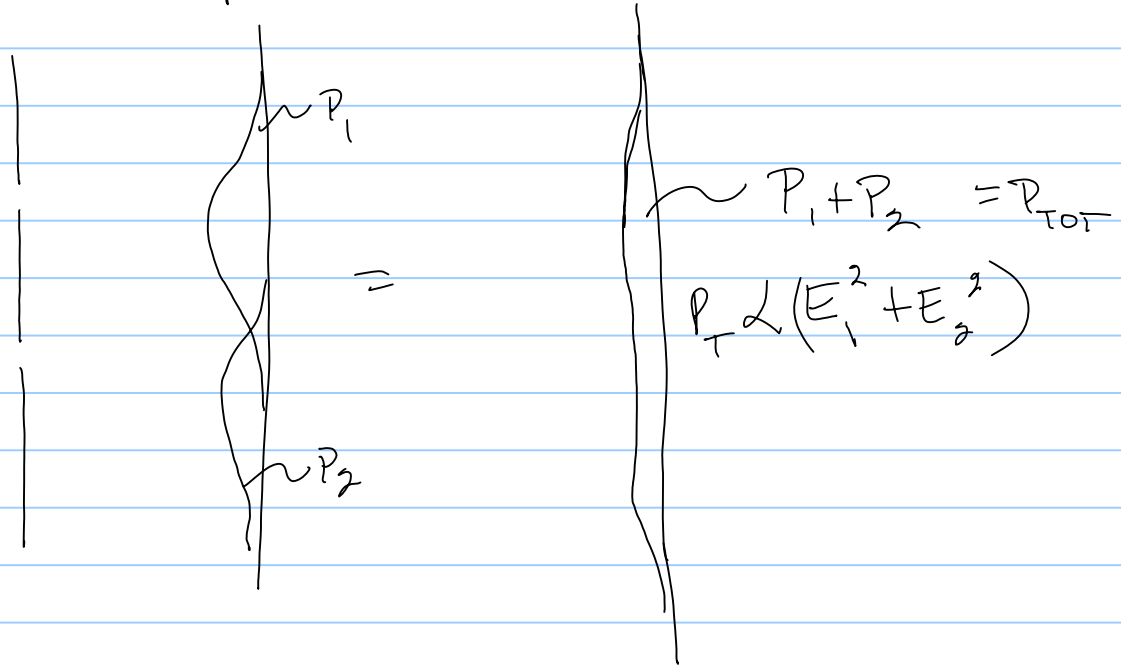 P₁
P₁ + P₂ = P_TOT
=
P_T ∝ (E₁² + E₂²)
P₂